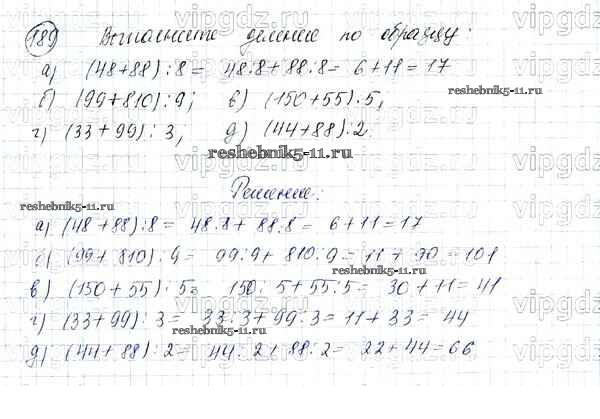 189 Выполните деление по образцу:
а) (48+88):8= 48:8+88:8= 6+11=17
б) (99+810):9; в) (150+55):5,
reshebnik5-11.ru
г) (33+99): 3, д) (44+88):2.
reshebnik5-11.ru
Решение:
reshebnik5-11.ru
а) (48+88):8= 48:8+ 88:8= 6+11=17
б) (99+810):9= 99:9+ 810:9= 11+ 90=101
reshebnik5-11.ru
в) (150+55):5= 150:5+55:5= 30+11=41
г) (33+99):3= 33:3+99:3=11+33= 44
reshebnik5-11.ru
д) (44+88):2= 44:2+88:2= 22+44=66
vipgdz.ru